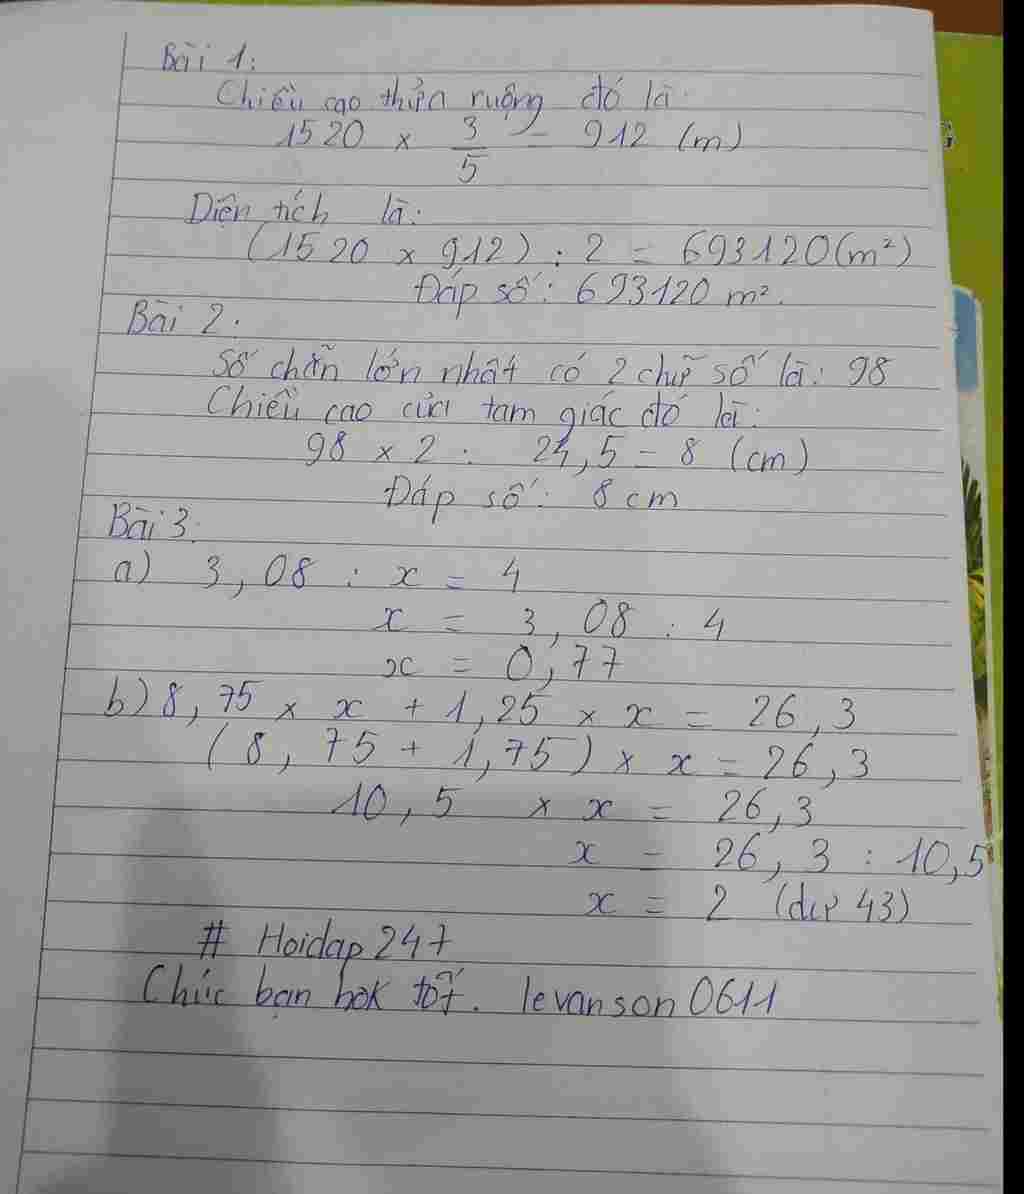 Bài 1:
Chiều cao thửa ruộng đó là:
1520 × 3/5 = 912 (m)
Diện tích là:
(1520 × 912) : 2 = 693120 (m²)
Đáp số: 693120 m².
Bài 2:
Số chẵn lớn nhất có 2 chữ số là: 98
Chiều cao của tam giác đó là:
98 × 2 : 24,5 = 8 (cm)
Đáp số: 8 cm
Bài 3:
a) 3,08 : x = 4
x = 3,08 : 4
x = 0,77
b) 8,75 × x + 1,25 × x = 26,3
(8,75 + 1,75) × x = 26,3
10,5 × x = 26,3
x = 26,3 : 10,5
x = 2 (dư 43)
# Hoidap247
Chúc bạn hok tốt. levanson0611